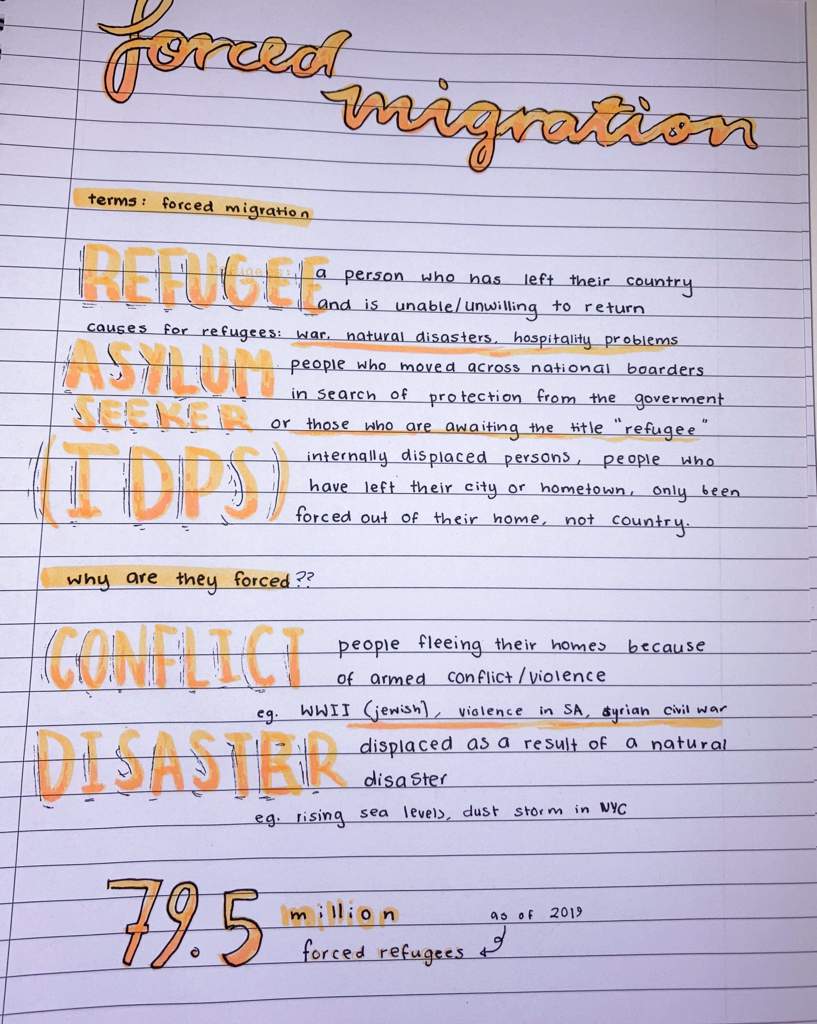 forced
migration
terms: forced migration
REFUGEE a person who has left their country
and is unable/unwilling to return
causes for refugees: war, natural disasters, hospitality problems
ASYLUM people who moved across national boarders
in search of protection from the goverment
SEEKER or those who are awaiting the title "refugee"
(IDPS) internally displaced persons, people who
have left their city or hometown, only been
forced out of their home, not country.
why are they forced??
CONFLICT people fleeing their homes because
of armed conflict/violence
eg. WWII (jewish), violence in SA, syrian civil war
DISASTER displaced as a result of a natural
disaster
eg. rising sea levels, dust storm in NYC
79.5 million as of 2019
forced refugees